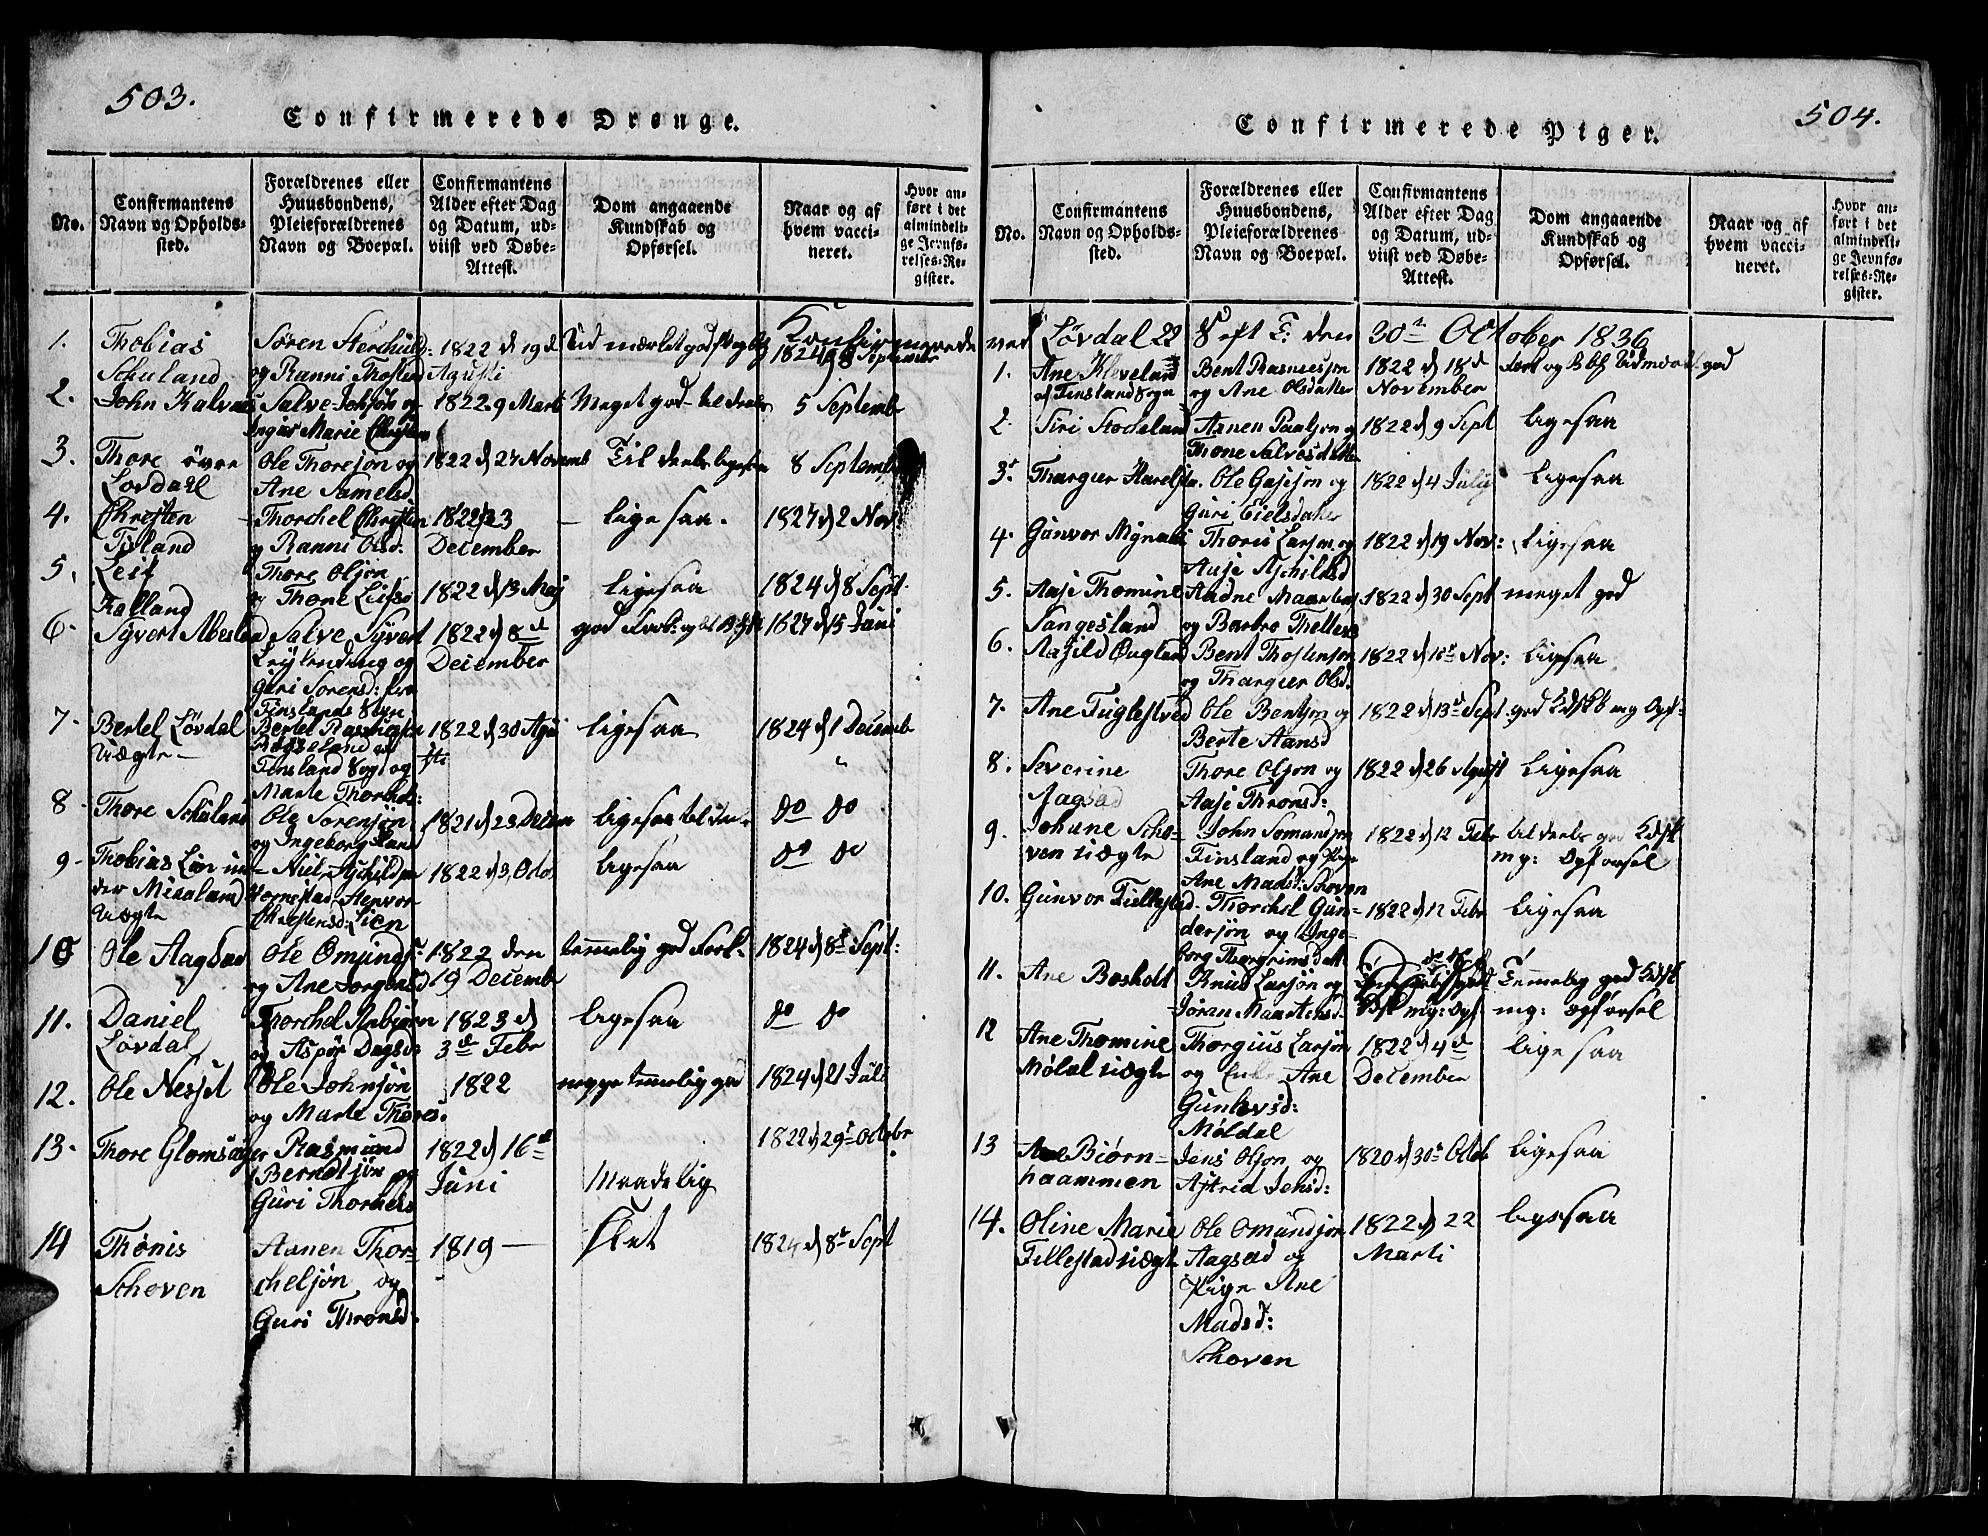 503.
Confirmerede Drenge.
No.
Confirmantens
Navn og Opholds-
sted.
Forældrenes eller
Huusbondens,
Pleieforældrenes
Navn og Boepæl.
Confirmantens
Alder efter Dag
og Datum, ud-
viist ved Døbe-
Attest.
Dom angaaende
Kundskab og
Opførsel.
Naar og af
hvem vacci-
neret.
Hvor an-
ført i det
almindeli-
ge Jevnfø-
relses-Re-
gister.
Konfirmerede
1.
Thobias
Schuland
Søren
og Ranni
1822 d 19 d
Agusti
2.
John
Salve Johsøn og
Ingur Marie
1822. 9 Marti
Meget god til deels
5 Septemb
3.
Thore øvre
Lovdahl
Ole Thoresøn og
Ane Samelsd
1822 d 27 Novemb
Til deels ligesaa
8 Septemb
4.
Chresten
Tisland
Thorchel Chresten
og Ranni Olsd:
1822 d 23
December
ligesaa.
1827 d 2 Nov:
5.
Leif
Kalland
Thore Olsøn
og Thone
1822 d 13 Maj
ligesaa
1824 d 8 Sept
6.
Syvert
Salve Syvert
og
Guri Sorensd: fra
Finslands Sogn
1822 d 8d
December
1827 d 15 Juni
7.
Bertel Løvdal
Uægte
Bertel
Finsland Sogn og
Marte
1822 d 30 Agu
sti
ligesaa
1824 d 1 Decemb
8
Thore Schuland
Ole Sorensøn
og Ingeborg
1821 d 23 Decem
ligesaa
do do
9
Thobias
der Misaland
Uægte
Stenvor
Chrestensd: Lien
1822 d 3 Octo
ligesaa
do do
10
Ole Aagsad
Ole Omunds:
og Ane
1822 den
19 Decemb
temmelig god
1824 d 8d Sept:
11.
Daniel
Løvdal
Thorchel Anbiørn
og Aspør Dagsd:
1823 d
3d Febr
ligesaa
do do
12.
Ole Nesset
Ole Johnsøn
og Marte Thores:
1822
neppe temelig god
1824 d 21 Juli
13.
Thore Glomsager
Rasmund
Berndtsøn og
Guri
1822 d 16d
Juni
Maadelig
1822 d 29d Octobr
14
Thønis
Schoven
Aanen Thor-
chelsøn og
Guri Thronsd:
1819
Slet
1824 d 8d Sept
504.
Confirmerede Piger.
No.
Confirmantens
Navn og Opholds-
sted.
Forældrenes eller
Huusbondens,
Pleieforældrenes
Navn og Boepæl.
Confirmantens
Alder efter Dag
og Datum, ud-
viist ved Døbe-
Attest.
Dom angaaende
Kundskab og
Opførsel.
Naar og af
hvem vacci-
neret.
Hvor an-
ført i det
almindeli-
ge Jevnfø-
relses-Re-
gister.
ved Løvdal 22 S eft T. den 30te October 1836
1.
Ane Kleveland
af Finsland Sogn
Bent Rasmusøn
og Ane Olsdatter
1822 d 18d
November
2.
Siri Stodeland
Aanen Paalsøn og
Thone Salvesdatter
1822 d 9 Sept
ligesaa
3.
Thargier
Ole og
Guri Eielsdatter
1822 d 4 July
ligesaa
4.
Gunvor
Thoris Larsøn og
Aasje
1822 d 19 Nov:
ligesaa
5.
Aasje Thomine
Sangesland
Aadne
og Barbro
1822 d 30 Sept
meget god
6.
Aasild Øugland
Bent Thostensøn
og Thargier Olsd.
1822 d 16d Nov:
ligesaa
7.
Ane Fuglestved
Ole Bentsøn og
Berte Aansd
1822 d 13d Sept
god Kdskb mg Opf
8.
Severine
Aagsad
Thore Olsøn og
Aasje Thronsd:
1822 d 26 Agust
ligesaa
9.
Johune Scho-
ven uægte
John Somundsøn
Finsland og Pige
Ane Madsd: Schoven
1822 d 12 Febr
til deels god Kdsk
mg: Opførsel
10.
Gunvor Fillestad
Thorchel Gun-
dersøn og Inge-
borg Thorgrimsdatt
1822 d 12 Febr
ligesaa
11.
Ane Bosholt
Knud Larsøn og
Jøran Maartensd:
Temmelig god Kdsk
mg: Opførsel
12
Ane Thomine
Møldal uægte
Thorgius Larsøn
og Ane
Gunlevsd:
Møldal
1822 d 4d
December
ligesaa
13
Ane Biørn-
haammen
Jens Olsøn og
Astrid Jensd:
1820 d 30d Octob
ligesaa
14.
Oline Marie
Fillestad uægte
Ole Omundsøn
Aagsad og
Pige Ane
Madsd:
Schoven
1822 d 22
Marti
ligesaa